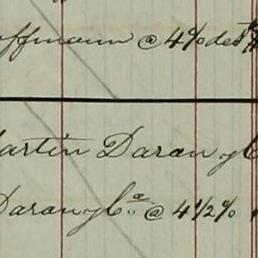 offmann @ 4% des
Martin Daran y C
Daran y Cª @ 4 1/2%